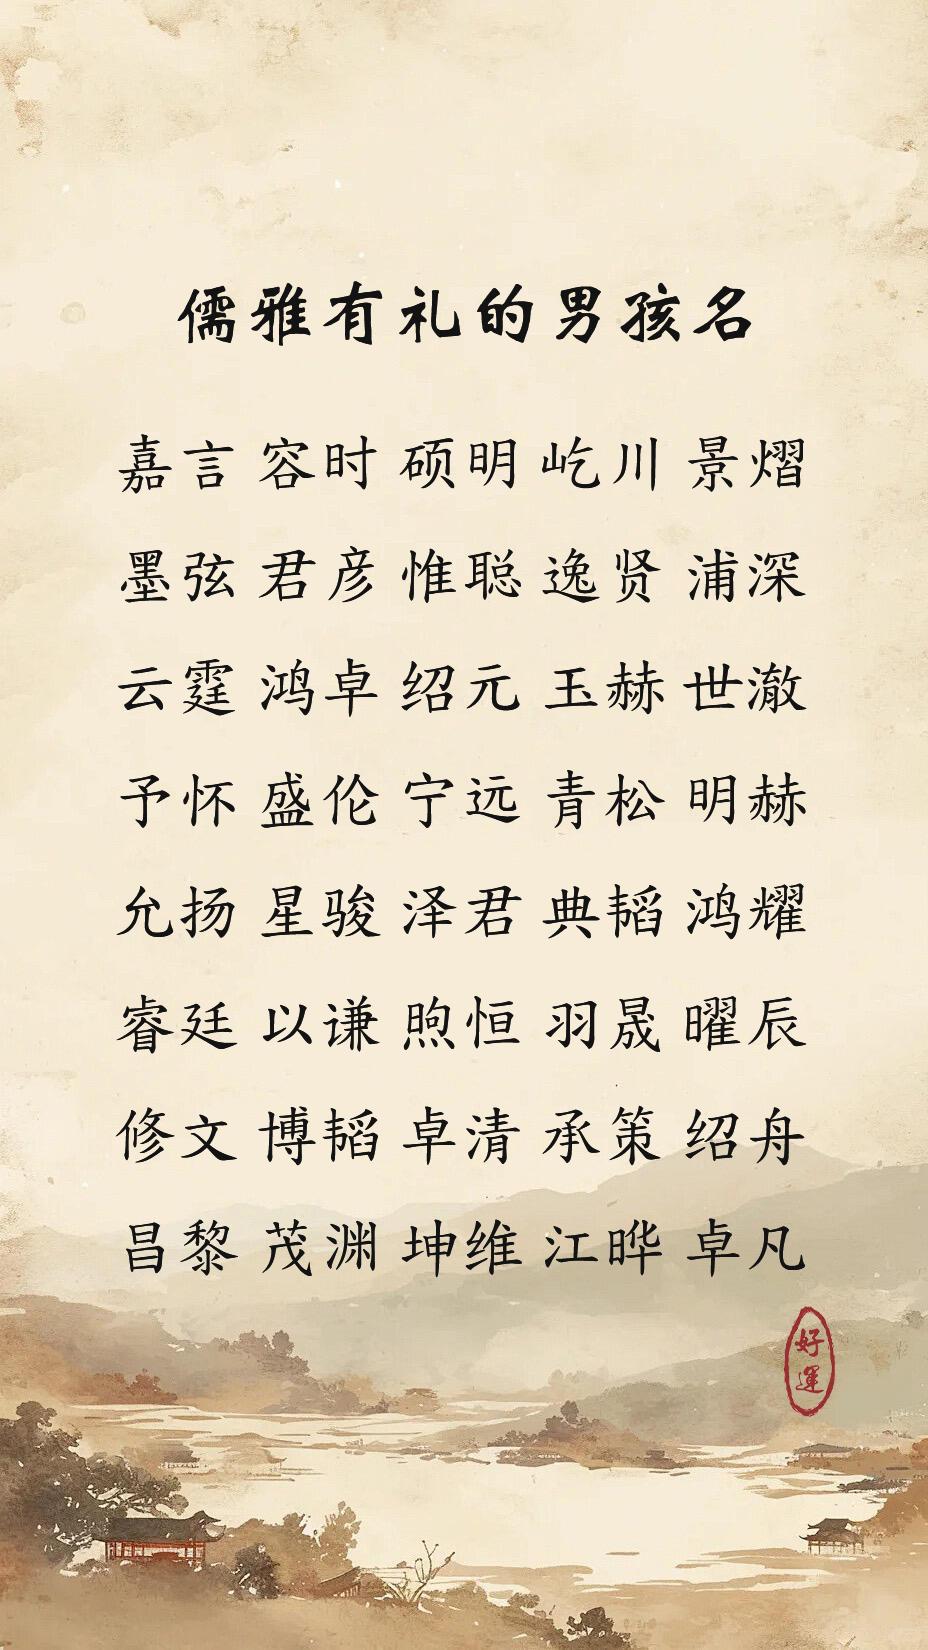 儒雅有礼的男孩名
嘉言 容时 硕明 屹川 景熠
墨弦 君彦 惟聪 逸贤 浦深
云霆 鸿卓 绍元 玉赫 世澈
予怀 盛伦 宁远 青松 明赫
允扬 星骏 泽君 典韬 鸿耀
睿廷 以谦 煦恒 羽晟 曜辰
修文 博韬 卓清 承策 绍舟
昌黎 茂渊 坤维 江晔 卓凡
好運